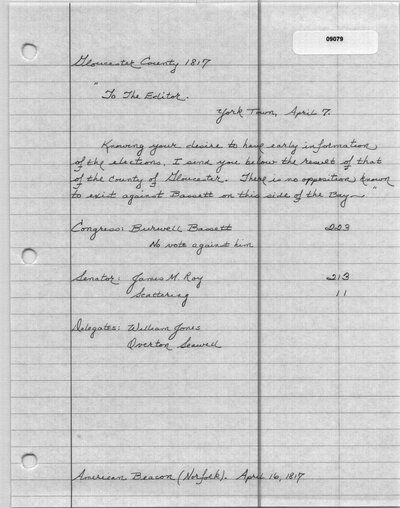 09079
Gloucester County 1817
"To The Editor.
York Town, April 7.
Knowing your desire to have early information
of the elections, I send you below the result of that
of the County of Gloucester. There is no opposition known
to exist against Bassett on this side of the Bay."
Congress: Burwell Bassett 223
No vote against him
Senator: James M. Roy 213
Scattering 11
Delegates: William Jones
Overton Seawell
American Beacon (Norfolk). April 16, 1817